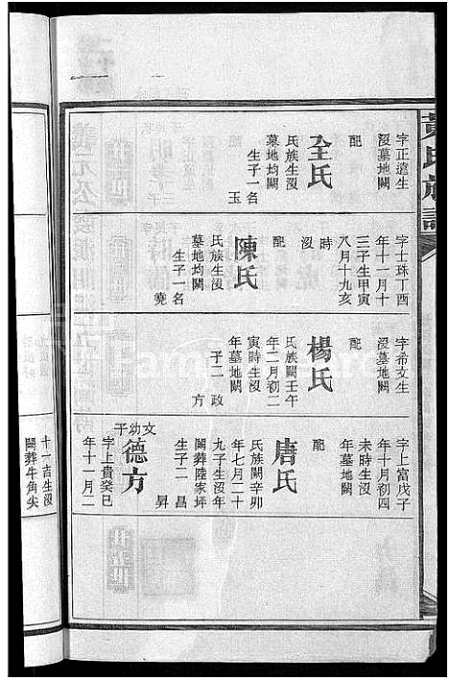 黄氏族譜
字正道生
沒墓地闕
配
全氏
氏族生沒
墓地均闕
生子一名
玉
字士珠丁酉
年十一月十
三子生甲寅
八月十九亥
時
沒
配
陳氏
氏族生沒
墓地均闕
生子一名
堯
字希文生
沒墓地闕
配
楊氏
氏族闕壬午
年二月初二
寅時生沒
年墓地闕
子二 政
方
字上富戊子
年十月初四
未時生沒
年墓地闕
配
唐氏
氏族闕辛卯
年七月二十
九子生沒年
闕葬陸家坪
生子二 昌
昇
文幼子
德方
字上貴癸巳
年十一月二
十一吉生沒
闕葬牛角尖